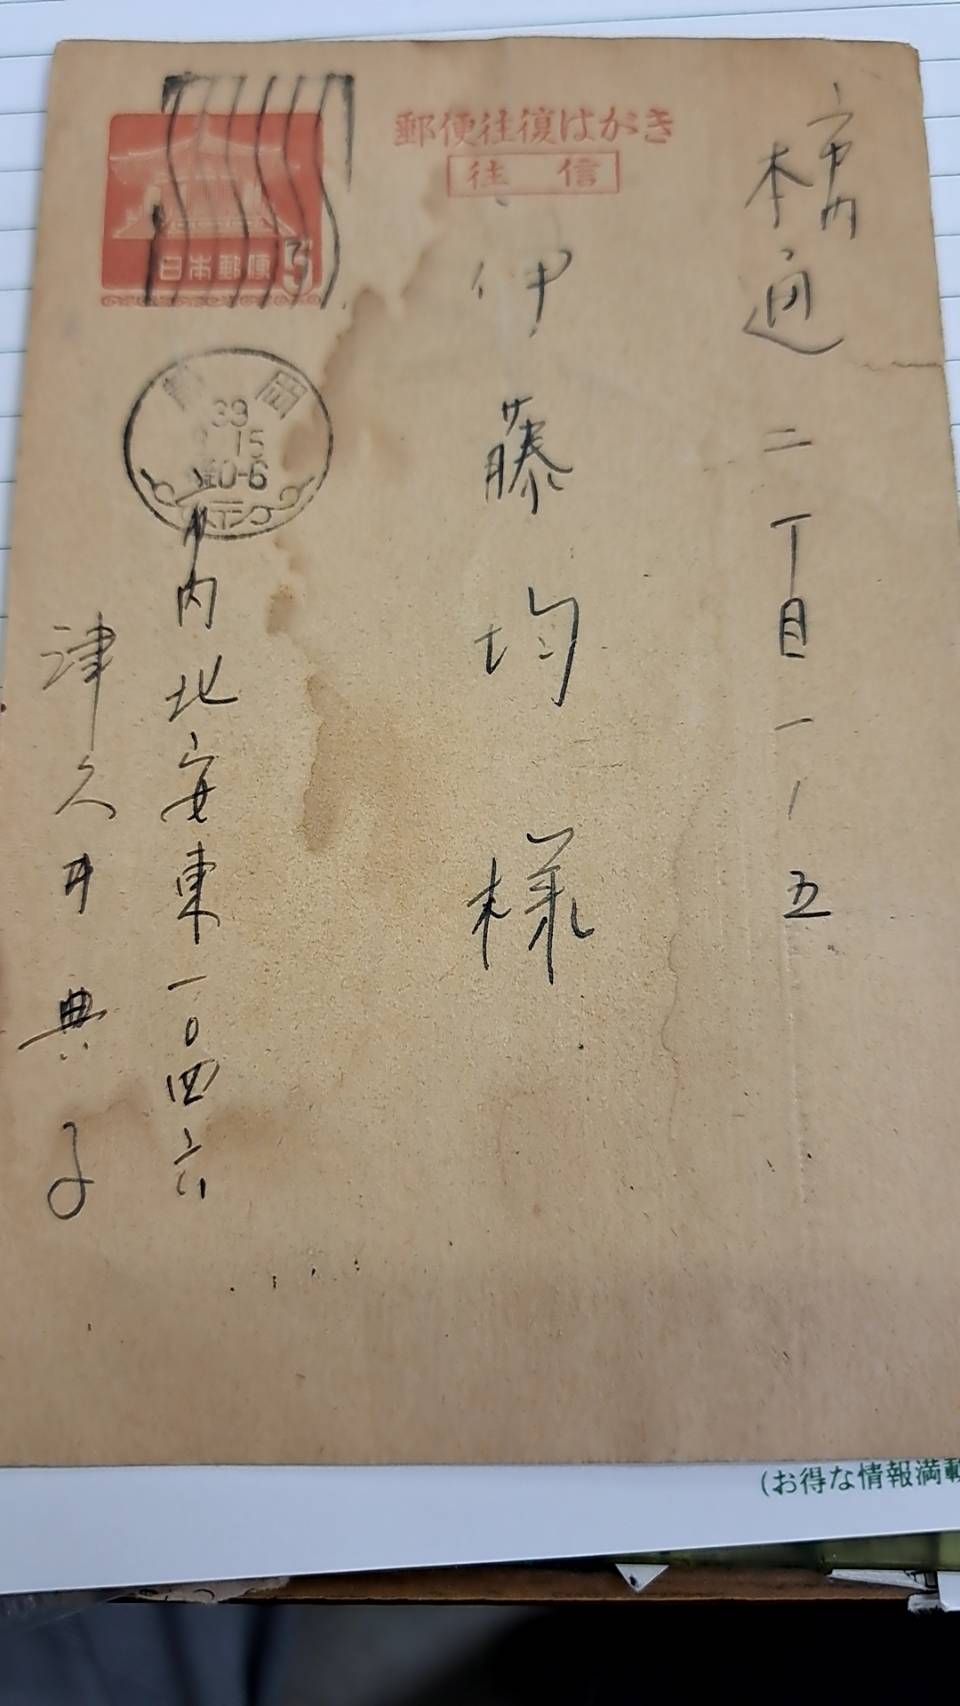 郵便往復はがき
往信
日本郵便 5
市内
本通二丁目一ノ五
伊藤均様
岡
39
15
0-6
市内北安東一〇四六
津久井典子
(お得な情報満載